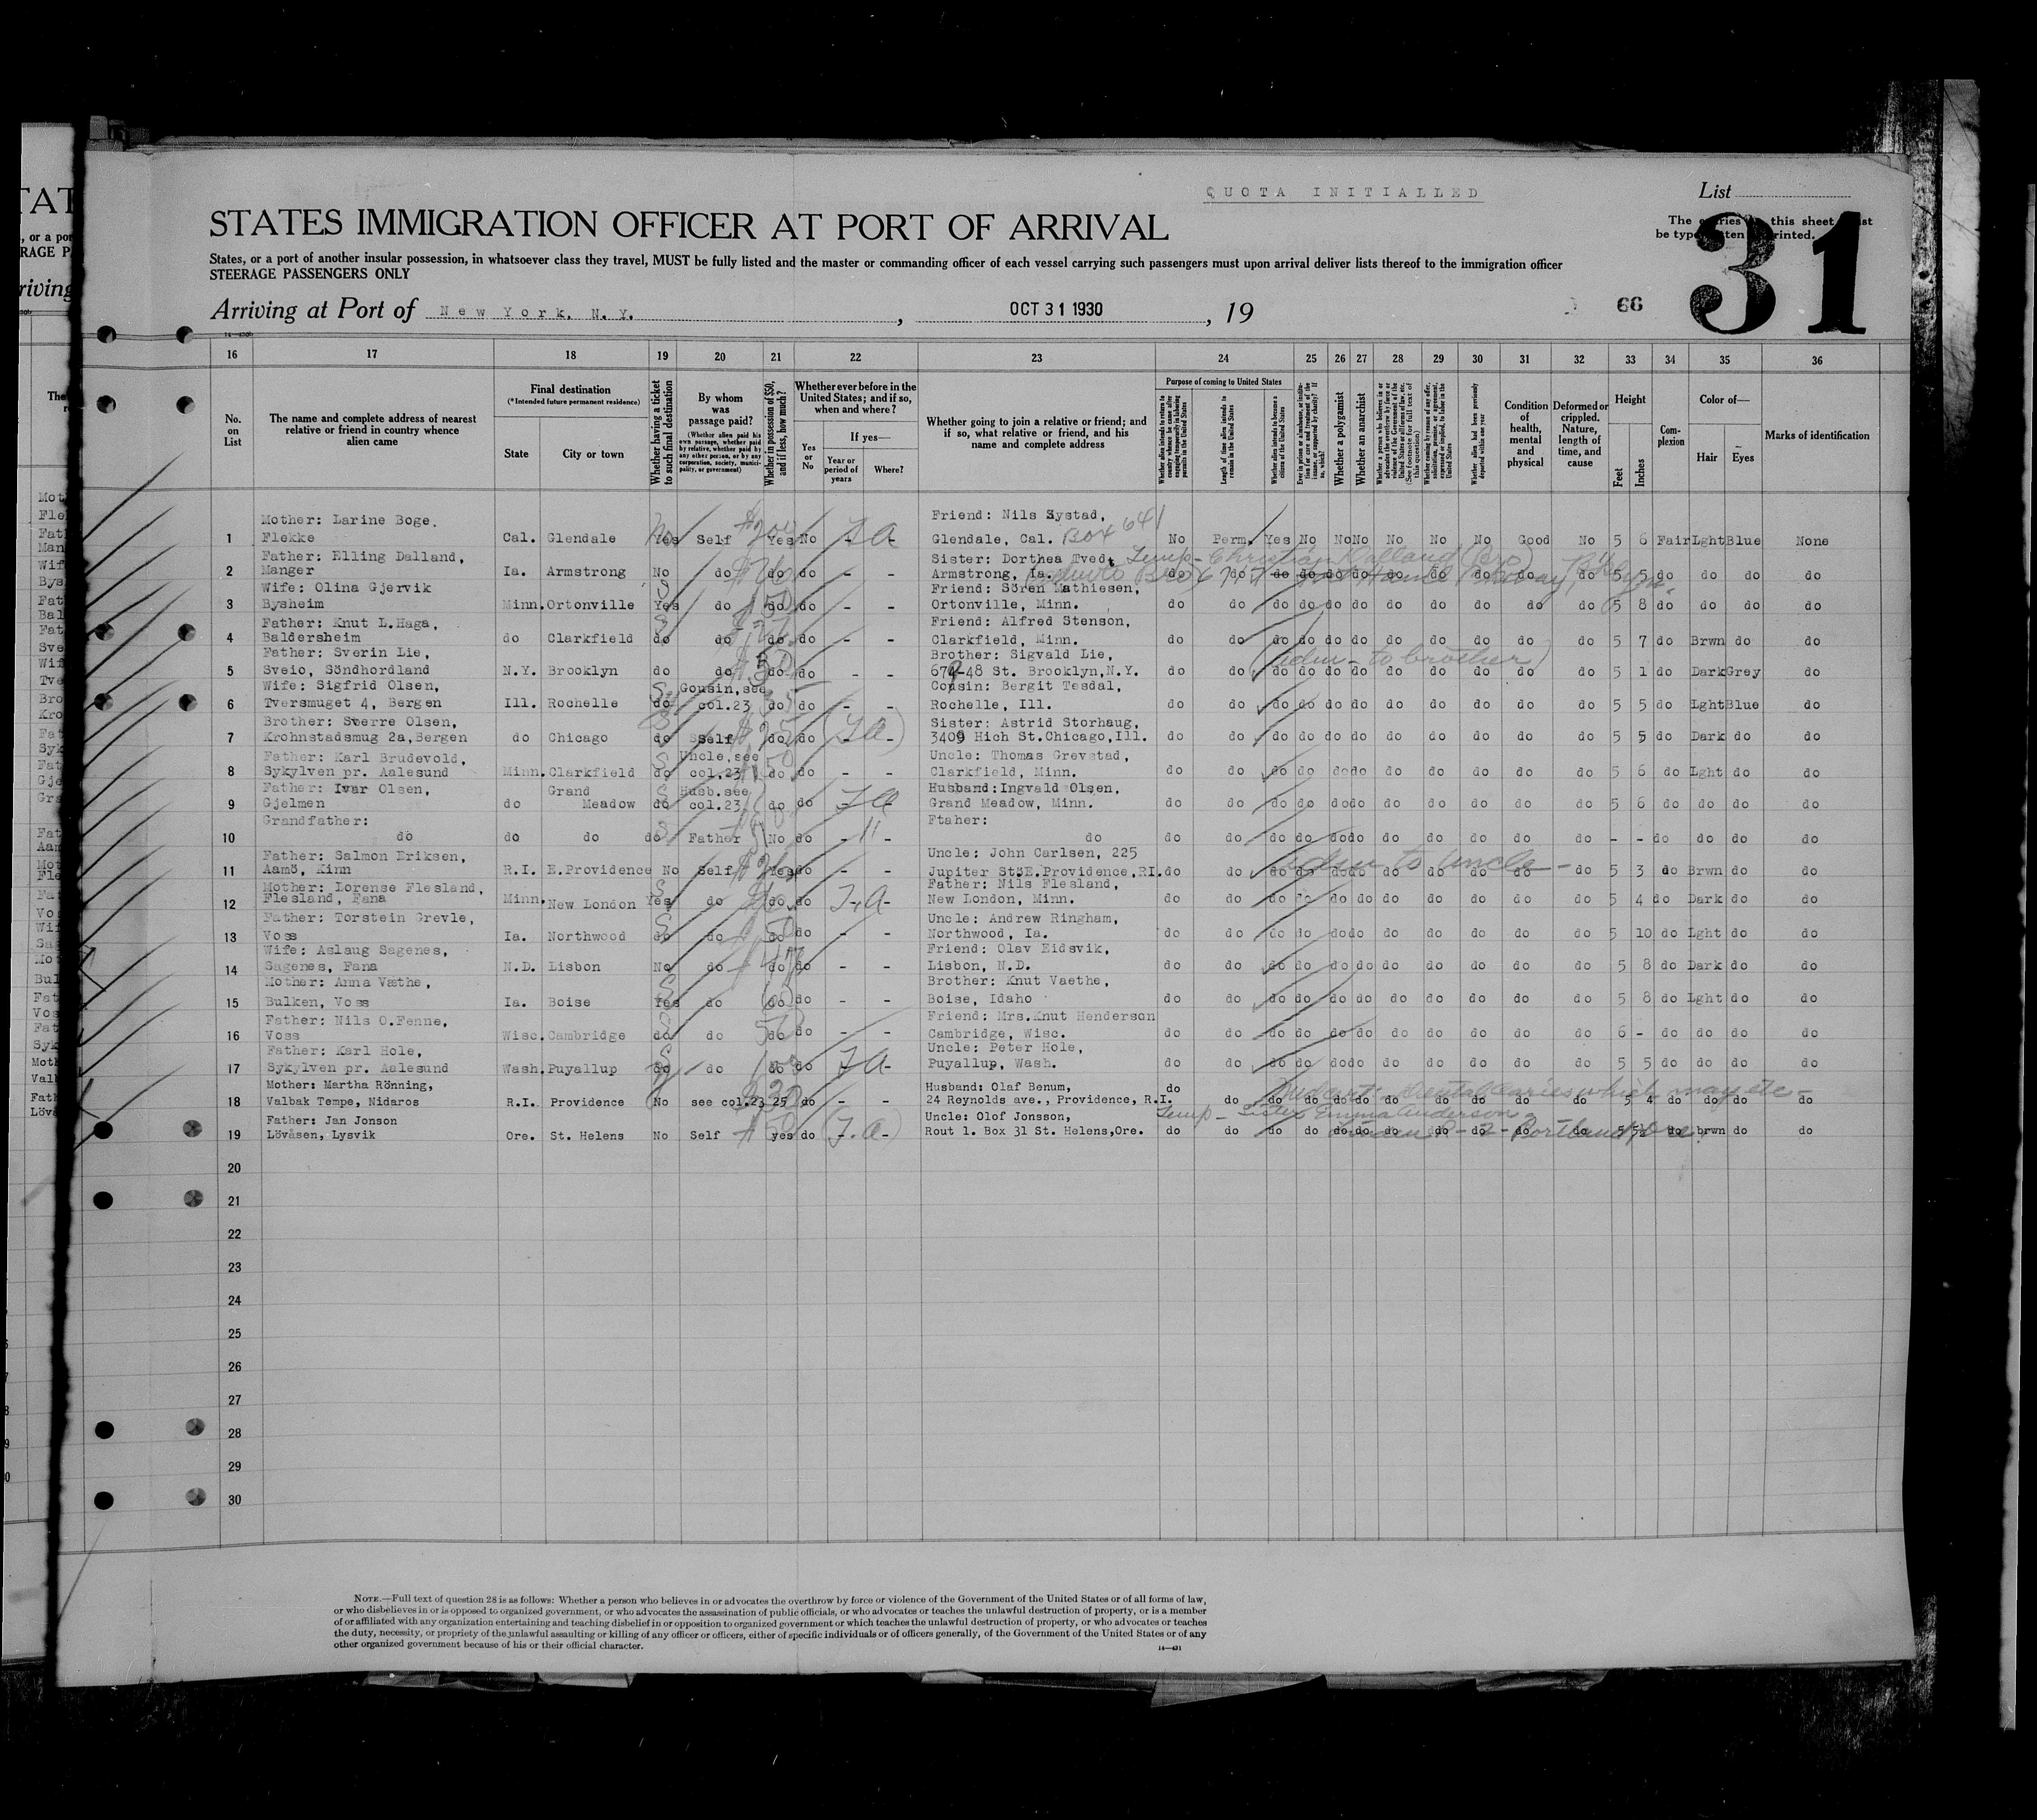 QUOTA INITIALLED
List
31
STATES IMMIGRATION OFFICER AT PORT OF ARRIVAL
The entries this sheet
be typewritten printed.
States, or a port of another insular possession, in whatsoever class they travel, MUST be fully listed and the master or commanding officer of each vessel carrying such passengers must upon arrival deliver lists thereof to the immigration officer
STEERAGE PASSENGERS ONLY
Arriving at Port of New York, N.Y., OCT 31 1930, 19
66
16 17 18 19 20 21 22 23 24 25 26 27 28 29 30 31 32 33 34 35 36
No. on List
The name and complete address of nearest relative or friend in country whence alien came
Final destination
(*Intended future permanent residence)
State
City or town
Whether having a ticket to such final destination
By whom was passage paid?
(Whether alien paid his own passage, whether paid by relative, whether paid by any other person, or by any corporation, society, municipality, or government)
Whether in possession of $50, and if less, how much?
Whether ever before in the United States; and if so, when and where?
Yes or No
If yes—
Year or period of years
Where?
Whether going to join a relative or friend; and if so, what relative or friend, and his name and complete address
Purpose of coming to United States
Length of time alien intends to remain in the United States
Whether alien intends to become a citizen of the United States
Whether a polygamist
Whether an anarchist
Condition of health, mental and physical
Deformed or crippled. Nature, length of time, and cause
Height
Feet
Inches
Complexion
Color of—
Hair
Eyes
Marks of identification
Mother: Larine Boge, Friend: Nils Systad,
1 Flekke Cal. Glendale Yes Self Yes No - - Glendale, Cal. Box 641 No Perm. Yes No No No No No No Good No 5 6 Fair Lght Blue None
Father: Elling Dalland, Sister: Dorthea Tvedt Temp - Christian Dalland (Bro)
2 Manger Ia. Armstrong No do do do - - Armstrong, Ia. do do do do do do do do do do do 5 5 do do do do
Wife: Olina Gjervik Friend: Sören Mathiesen,
3 Bysheim Minn. Ortonville Yes do do do - - Ortonville, Minn. do do do do do do do do do do do 5 8 do do do do
Father: Knut L.Haga, Friend: Alfred Stenson,
4 Baldersheim do Clarkfield do do do do - - Clarkfield, Minn. do do do do do do do do do do do 5 7 do Brwn do do
Father: Sverin Lie, Brother: Sigvald Lie, (adm - to brother)
5 Sveio, Söndhordland N.Y. Brooklyn do do do do - - 679-48 St. Brooklyn,N.Y. do do do do do do do do do do do 5 1 do Dark Grey do
Wife: Sigfrid Olsen, Cousin, see Cousin: Bergit Tesdal,
6 Tversmuget 4, Bergen Ill. Rochelle do col.23 do do - - Rochelle, Ill. do do do do do do do do do do do 5 5 do Lght Blue do
Brother: Sverre Olsen, Sister: Astrid Storhaug,
7 Krohnstadsmug 2a,Bergen do Chicago do Self do do - - 3409 Hich St.Chicago,Ill. do do do do do do do do do do do 5 5 do Dark do do
Father: Karl Brudevold, Uncle,see Uncle: Thomas Grevstad,
8 Sykylven pr. Aalesund Minn. Clarkfield do col.23 do do - - Clarkfield, Minn. do do do do do do do do do do do 5 6 do Lght do do
Father: Ivar Olsen, Grand Husb.see Husband:Ingvald Olsen,
9 Gjelmen do Meadow do col.23 do do - - Grand Meadow, Minn. do do do do do do do do do do do 5 6 do do do do
Grandfather: Ftaher:
10 do do do do Father No do - do do do do do do do do do do do do - - do do do do
Father: Salmon Eriksen, Uncle: John Carlsen, 225
11 Aamö, Kinn R.I. E.Providence No Self Yes do - - Jupiter St. E.Providence,RI. do do do do do do do do do do do 5 3 do Brwn do do
adm to Uncle -
Mother: Lorense Flesland, Father: Nils Flesland,
12 Flesland, Fana Minn. New London Yes do do do - New London, Minn. do do do do do do do do do do do 5 4 do Dark do do
Father: Torstein Grevle, Uncle: Andrew Ringham,
13 Voss Ia. Northwood do do do do - - Northwood, Ia. do do do do do do do do do do do 5 10 do Lght do do
Wife: Aslaug Sagenes, Friend: Olav Eidsvik,
14 Sagenes, Fana N.D. Lisbon No do do do - - Lisbon, N.D. do do do do do do do do do do do 5 8 do Dark do do
Mother: Anna Væthe, Brother: Knut Vaethe,
15 Bulken, Voss Ia. Boise Yes do do do - - Boise, Idaho do do do do do do do do do do do 5 8 do Lght do do
Father: Nils O.Fenne, Friend: Mrs.Knut Henderson
16 Voss Wisc. Cambridge do do do do - - Cambridge, Wisc. do do do do do do do do do do do 6 - do do do do
Father: Karl Hole, Uncle: Peter Hole,
17 Sykylven pr. Aalesund Wash. Puyallup do do do do - Puyallup, Wash. do do do do do do do do do do do 5 5 do do do do
Mother: Martha Rönning, Husband: Olaf Benum,
18 Valbak Tempe, Nidaros R.I. Providence No see col.23 25 do - - 24 Reynolds ave., Providence, R.I. do do do do do do do do do do do 5 4 do do do do
Father: Jan Jonson Uncle: Olof Jonsson, Temp - Sister Emma Anderson
19 Lövåsen, Lysvik Ore. St. Helens No Self yes do Rout 1. Box 31 St. Helens,Ore. do do do do do do do do do do do 5 5½ do brwn do do
20
21
22
23
24
25
26
27
28
29
30
NOTE.—Full text of question 28 is as follows: Whether a person who believes in or advocates the overthrow by force or violence of the Government of the United States or of all forms of law,
or who disbelieves in or is opposed to organized government, or who advocates the assassination of public officials, or who advocates or teaches the unlawful destruction of property, or is a member
of or affiliated with any organization entertaining and teaching disbelief in or opposition to organized government or which teaches the unlawful destruction of property, or who advocates or teaches
the duty, necessity, or propriety of the unlawful assaulting or killing of any officer or officers, either of specific individuals or of officers generally, of the Government of the United States or of any
other organized government because of his or their official character.
14—431